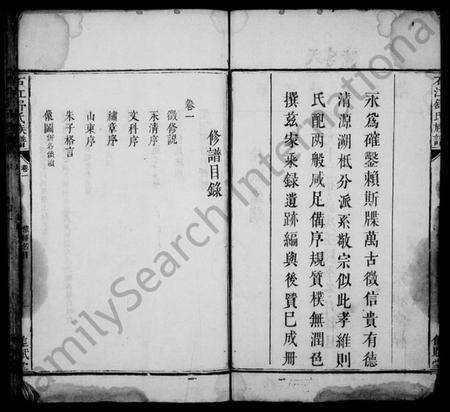 永為確鑿賴斯牒萬古徵信貴有德
清源溯柢分派系敬宗似此孝維則
氏配两般咸足備序規質樸無潤色
撰茲家乘録遺跡編與後賢巳成冊
石江舒氏族譜
修譜目錄
卷一
徵修説
永清序
文科序
繡章序
山東序
朱子格言
像圖
石江舒氏族譜
卷一
FamilySearch International